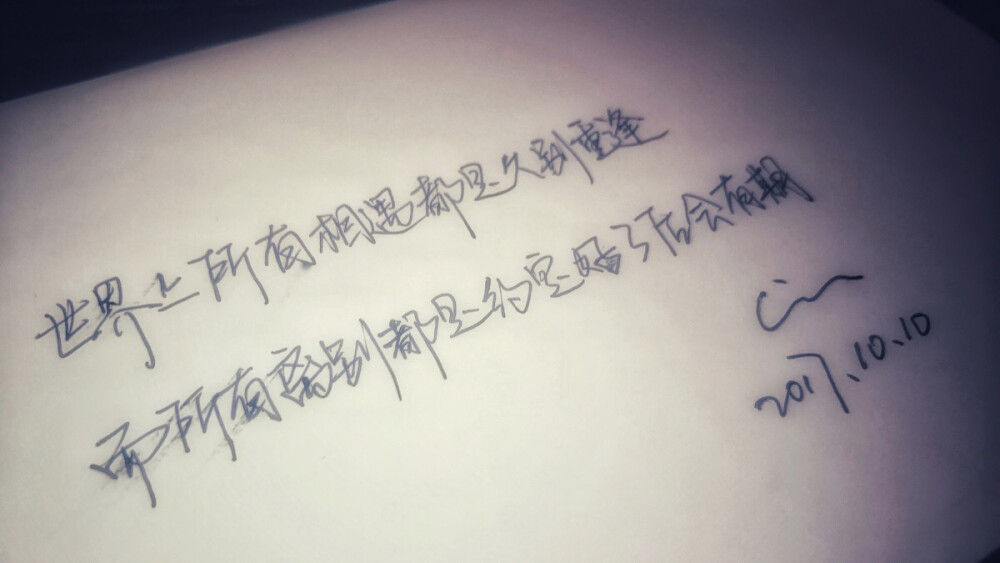 世界上所有相遇都是久别重逢
而所有离别都是约定好了后会有期
2017.10.10